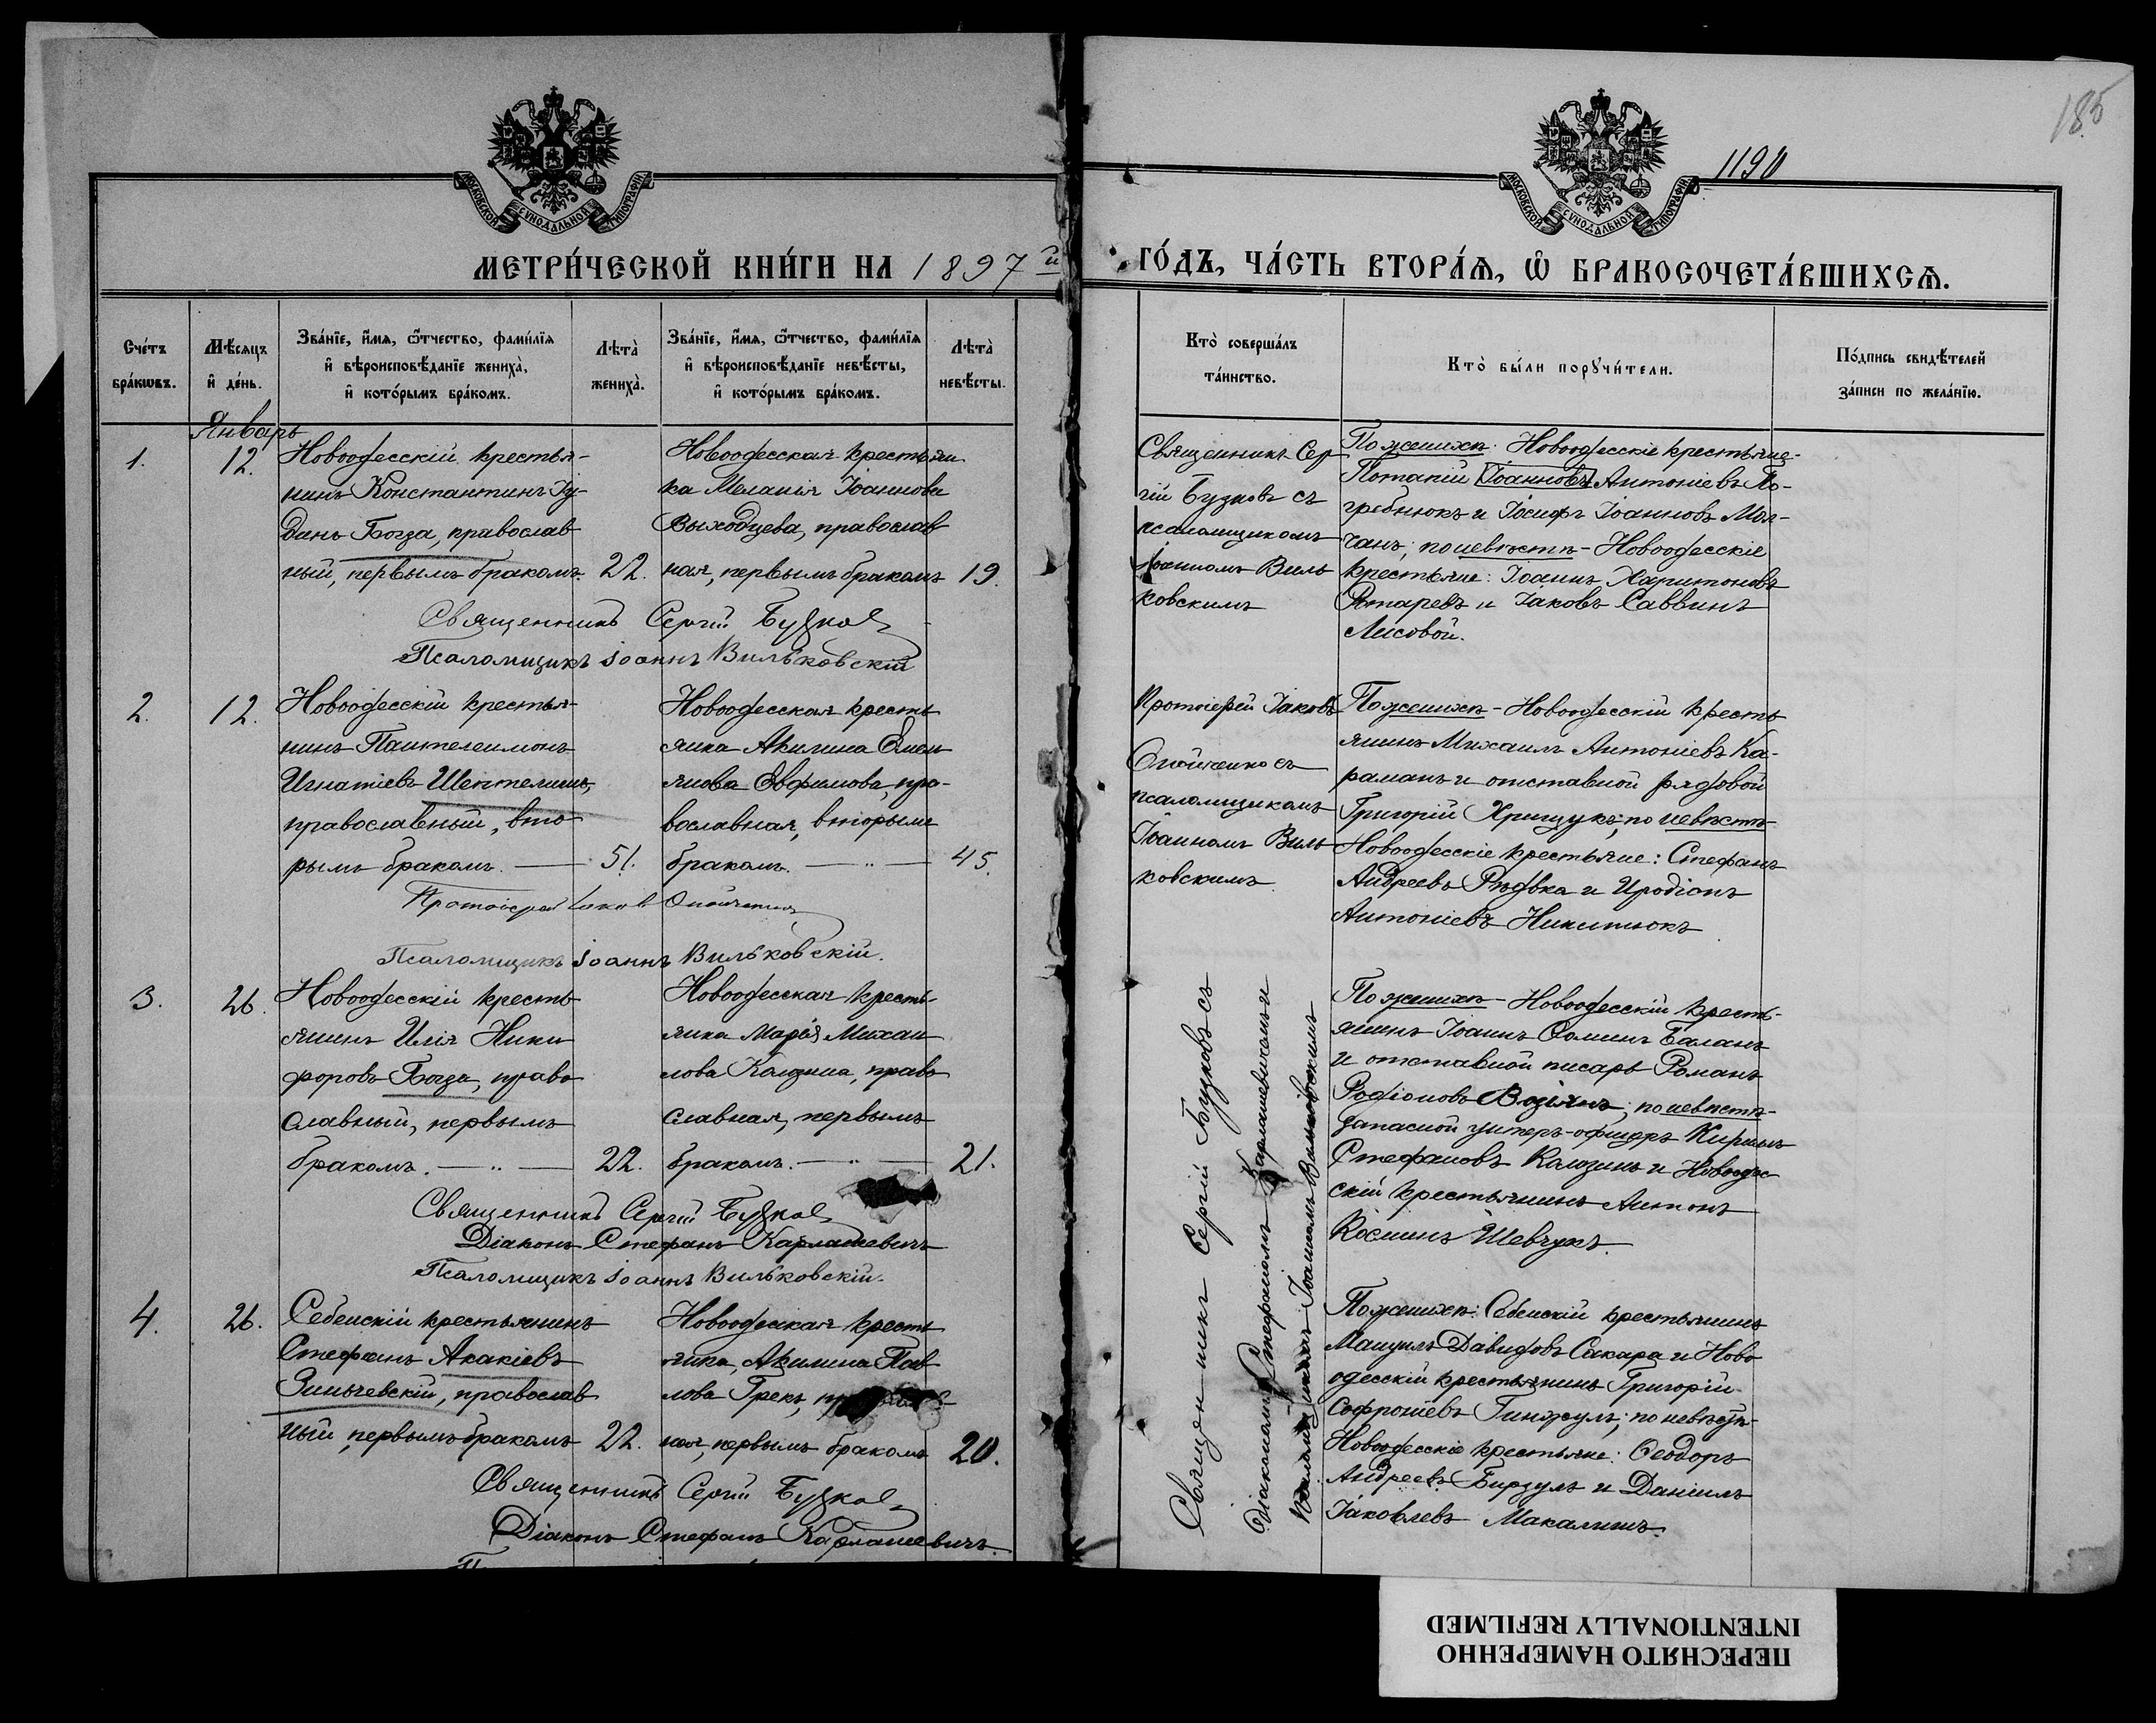 185
1190
МОСКОВСКОЙ СѴНОДАЛЬНОЙ ТИПОГРАФІИ
МОСКОВСКОЙ СѴНОДАЛЬНОЙ ТИПОГРАФІИ
МЕТРИ́ЧЕСКОЙ КНИ́ГИ НА 1897й
ГО́ДЪ, ЧА́СТЬ ВТОРА́Я, Ѽ БРАКОСОЧЕТА́ВШИХСѦ.
Сче́тъ бра́кѡвъ.
Мѣ́сяцъ и҆ де́нь.
Зва́нїе, и҆́мѧ, ѻ҆́тчество, фами́лїѧ и҆ вѣроисповѣ́данїе жениха̀, и҆ кото́рымъ бра́комъ.
Лѣта̀ жениха̀.
Зва́нїе, и҆́мѧ, ѻ҆́тчество, фами́лїѧ и҆ вѣроисповѣ́данїе невѣ́сты, и҆ кото́рымъ бра́комъ.
Лѣта̀ невѣ́сты.
Кто̀ соверша́лъ та́инство.
Кто̀ бы́ли порꙋчи́тели.
По́дпись свидѣ́телей за́писи по жела́нїю.
Январь
1.
12.
Новоодесскій крестья-
нинъ Константинъ Іу-
динъ Богза, православ
ный, первымъ бракомъ.
22.
Новоодесская крестьян
ка Меланія Іоаннова
Выходцева, православ
ная, первымъ бракомъ
19.
Священникъ Сер-
гій Бузковъ съ
псаломщикомъ
Іоанномъ Виль
ковскимъ
По женихѣ: Новоодесскіе крестьяне-
Потапій Іоанновъ Антоніевъ По-
гребнюкъ и Іосифъ Іоанновъ Мол-
чанъ; по невѣстѣ - Новоодесскіе
крестьяне: Іоаннъ Харитоновъ
Ятаревъ и Іаковъ Саввинъ
Лисовой.
Священникъ Сергій Бузков
Псаломщикъ Іоаннъ Вильковскій
2.
12.
Новоодесскій крестья-
нинъ Пантелеимонъ
Игнатіевъ Шептелинъ,
православный, вто-
рымъ бракомъ.
51.
Новоодесская кресть
янка Акилина Емель
янова Евфимова, пра-
вославная, вторымъ
бракомъ.
45.
Протоіерей Іаковъ
съ
псаломщикомъ
Іоанномъ Виль
ковскимъ
По женихѣ - Новоодесскій кресть
янинъ Михаилъ Антоніевъ Ка-
раманъ и отставной рядовой
Григорій Хрищукъ; по невѣстѣ-
Новоодесскіе крестьяне: Стефанъ
Андреевъ Рѣдвка и Иродіонъ
Антоніевъ Никитюкъ
Протоіерей Іаков
Псаломщикъ Іоаннъ Вильковскій.
3.
26.
Новоодесскій кресть
янинъ Илія Ники
форовъ Богза, право
славный, первымъ
бракомъ.
22.
Новоодесская кресть-
янка Марія Михаи
лова Калзина, право
славная, первымъ
бракомъ.
21.
Священникъ Сергій Бузковъ съ
Діакономъ Стефаномъ Карлашевичемъ и
Псаломщикомъ Іоанномъ Вильковскимъ
По женихѣ - Новоодесскій кресть-
янинъ Іоаннъ Ѳоминъ Баланъ
и отставной писарь Романъ
Родіоновъ Возіянъ; по невѣстѣ-
запасной унтеръ-офицеръ Кириллъ
Стефановъ Калзинъ и Новоодес-
скій крестьянинъ Антонъ
Косминъ Шевчукъ.
Священникъ Сергій Бузков
Діаконъ Стефанъ Карлашевичъ
Псаломщикъ Іоаннъ Вильковскій.
4.
26.
Себенскій крестьянинъ
Стефанъ Акакіевъ
Зинчевскій, православ
ный, первымъ бракомъ
22.
Новоодесская кресть
янка, Акилина Пав
лова Грекъ,
ная, первымъ бракомъ
20.
По женихѣ: Себенскій крестьянинъ
Мануилъ Давидовъ Сакара и Ново
одесскій крестьянинъ Григорій
Софроніевъ Гинжулъ; по невѣстѣ-
Новоодесскіе крестьяне: Ѳеодоръ
Андреевъ Бирзулъ и Даніилъ
Іаковлевъ Макалишъ.
Священникъ Сергій Бузков
Діаконъ Стефанъ Карлашевичъ.
ПЕРЕСНЯТО НАМЕРЕННО
INTENTIONALLY REFILMED